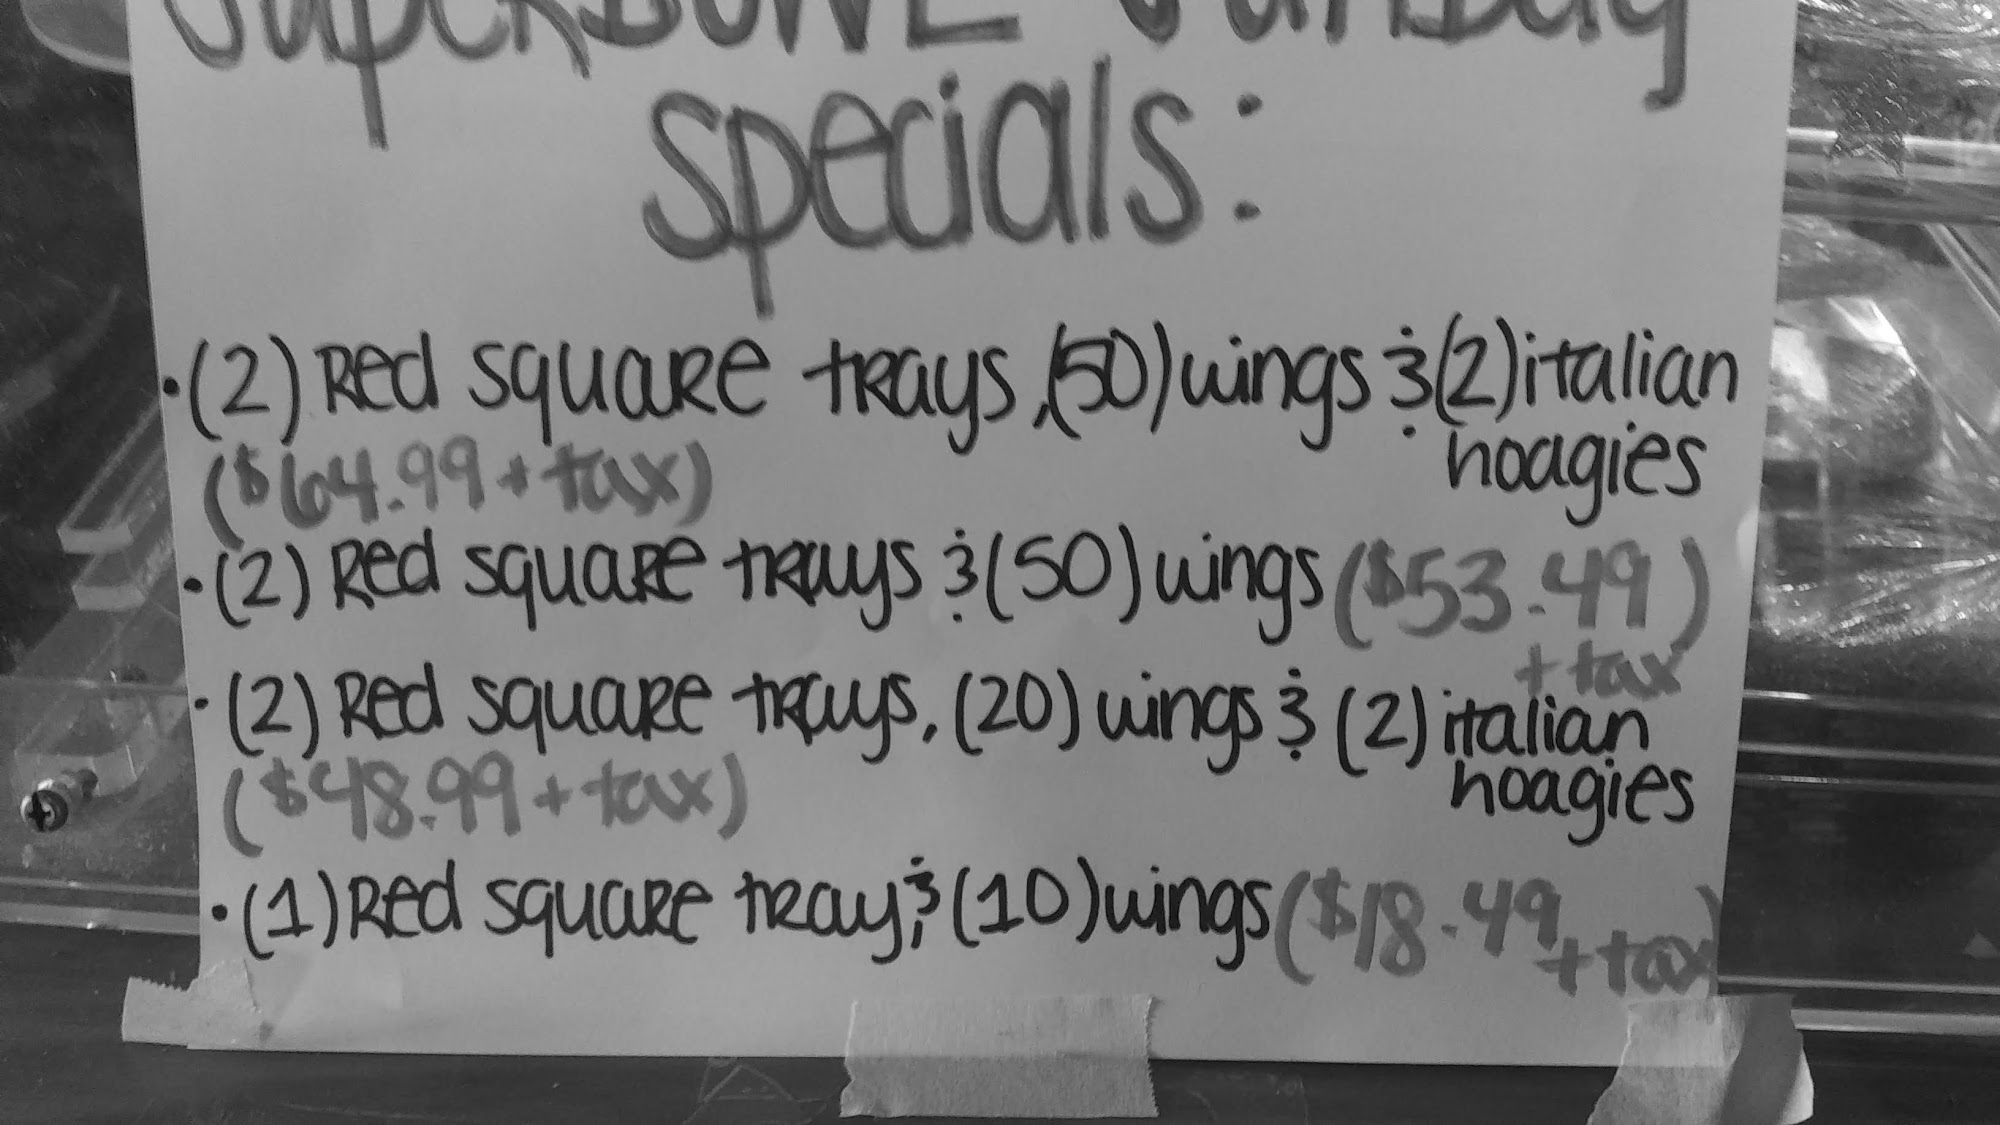 SuperBOWL Sunday
specials:
•(2) Red square trays,(50)wings &(2)italian
hoagies
($64.99 + tax)
•(2) Red square trays &(50)wings ($53.49)
+ tax
•(2) Red square trays, (20) wings & (2) italian
hoagies
($48.99 + tax)
•(1)Red square tray & (10)wings($18.49
+ tax)